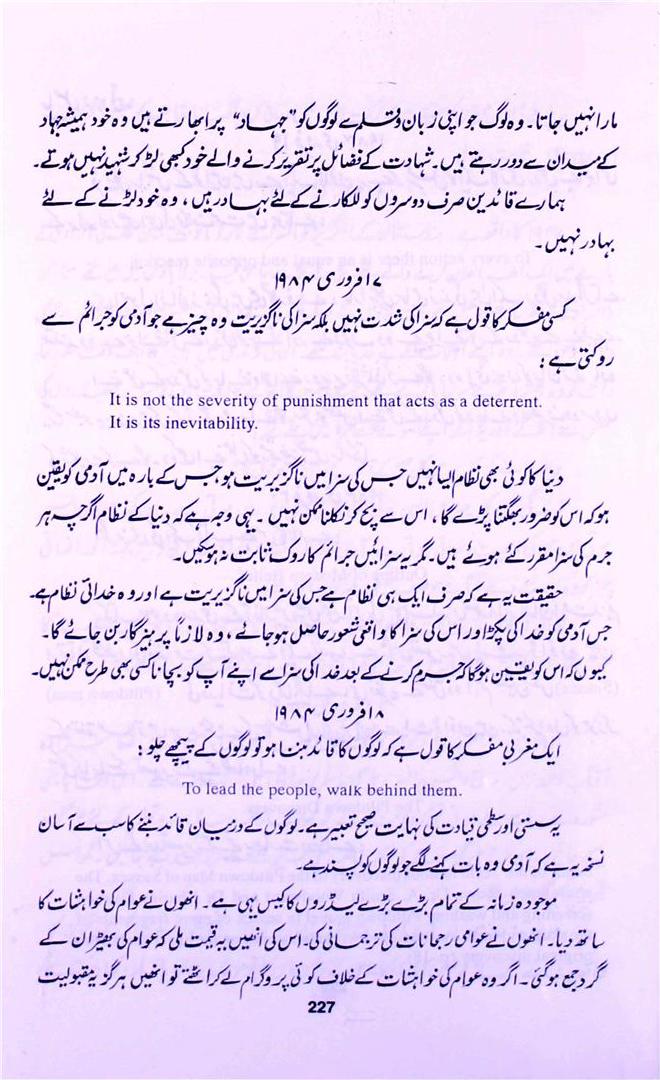 مارا نہیں جاتا۔ وہ لوگ جو اپنی زبان و قلم سے لوگوں کو "جہاد" پر ابھارتے ہیں وہ خود ہمیشہ جہاد
کے میدان سے دور رہتے ہیں۔ شہادت کے فضائل پر تقریر کرنے والے خود کبھی لڑ کر شہید نہیں ہوتے۔
ہمارے قائدین صرف دوسروں کو للکارنے کے لئے بہادر ہیں ، وہ خود لڑنے کے لئے
بہادر نہیں ۔
۱۷ فروری ۱۹۸۴
کسی مفکر کا قول ہے کہ سزا کی شدت نہیں بلکہ سزا کی ناگزیریت وہ چیز ہے جو آدمی کو جرائم سے
روکتی ہے :
It is not the severity of punishment that acts as a deterrent.
It is its inevitability.
دنیا کا کوئی بھی نظام ایسا نہیں جس کی سزا میں ناگزیریت ہو جس کے بارہ میں آدمی کو یقین
ہو کہ اس کو ضرور بھگتنا پڑے گا ، اس سے بچ کر نکلنا ممکن نہیں ۔ یہی وجہ ہے کہ دنیا کے نظام اگرچہ ہر
جرم کی سزا مقرر کئے ہوئے ہیں۔ مگر یہ سزائیں جرائم کا روک ثابت نہ ہو سکیں۔
حقیقت یہ ہے کہ صرف ایک ہی نظام ہے جس کی سزا میں ناگزیریت ہے اور وہ خدائی نظام ہے۔
جس آدمی کو خدا کی پکڑ اور اس کی سزا کا واقعی شعور حاصل ہو جائے ، وہ لازماً پرہیزگار بن جائے گا۔
کیوں کہ اس کو یقین ہوگا کہ جرم کرنے کے بعد خدا کی سزا سے اپنے آپ کو بچانا کسی بھی طرح ممکن نہیں۔
۱۸ فروری ۱۹۸۴
ایک مغربی مفکر کا قول ہے کہ لوگوں کا قائد بننا ہو تو لوگوں کے پیچھے چلو :
To lead the people, walk behind them.
یہ سستی اور سطحی قیادت کی نہایت صحیح تعبیر ہے۔ لوگوں کے درمیان قائد بننے کا سب سے آسان
نسخہ یہ ہے کہ آدمی وہ بات کہنے لگے جو لوگوں کو پسند ہے۔
موجودہ زمانہ کے تمام بڑے بڑے لیڈروں کا کیس یہی ہے ۔ انھوں نے عوام کی خواہشات کا
ساتھ دیا۔ انھوں نے عوامی رجحانات کی ترجمانی کی۔ اس کی انھیں یہ قیمت ملی کہ عوام کی بھیڑ ان کے
گرد جمع ہو گئی ۔ اگر وہ عوام کی خواہشات کے خلاف کوئی پروگرام لے کر اٹھتے تو انھیں ہرگز یہ مقبولیت
227